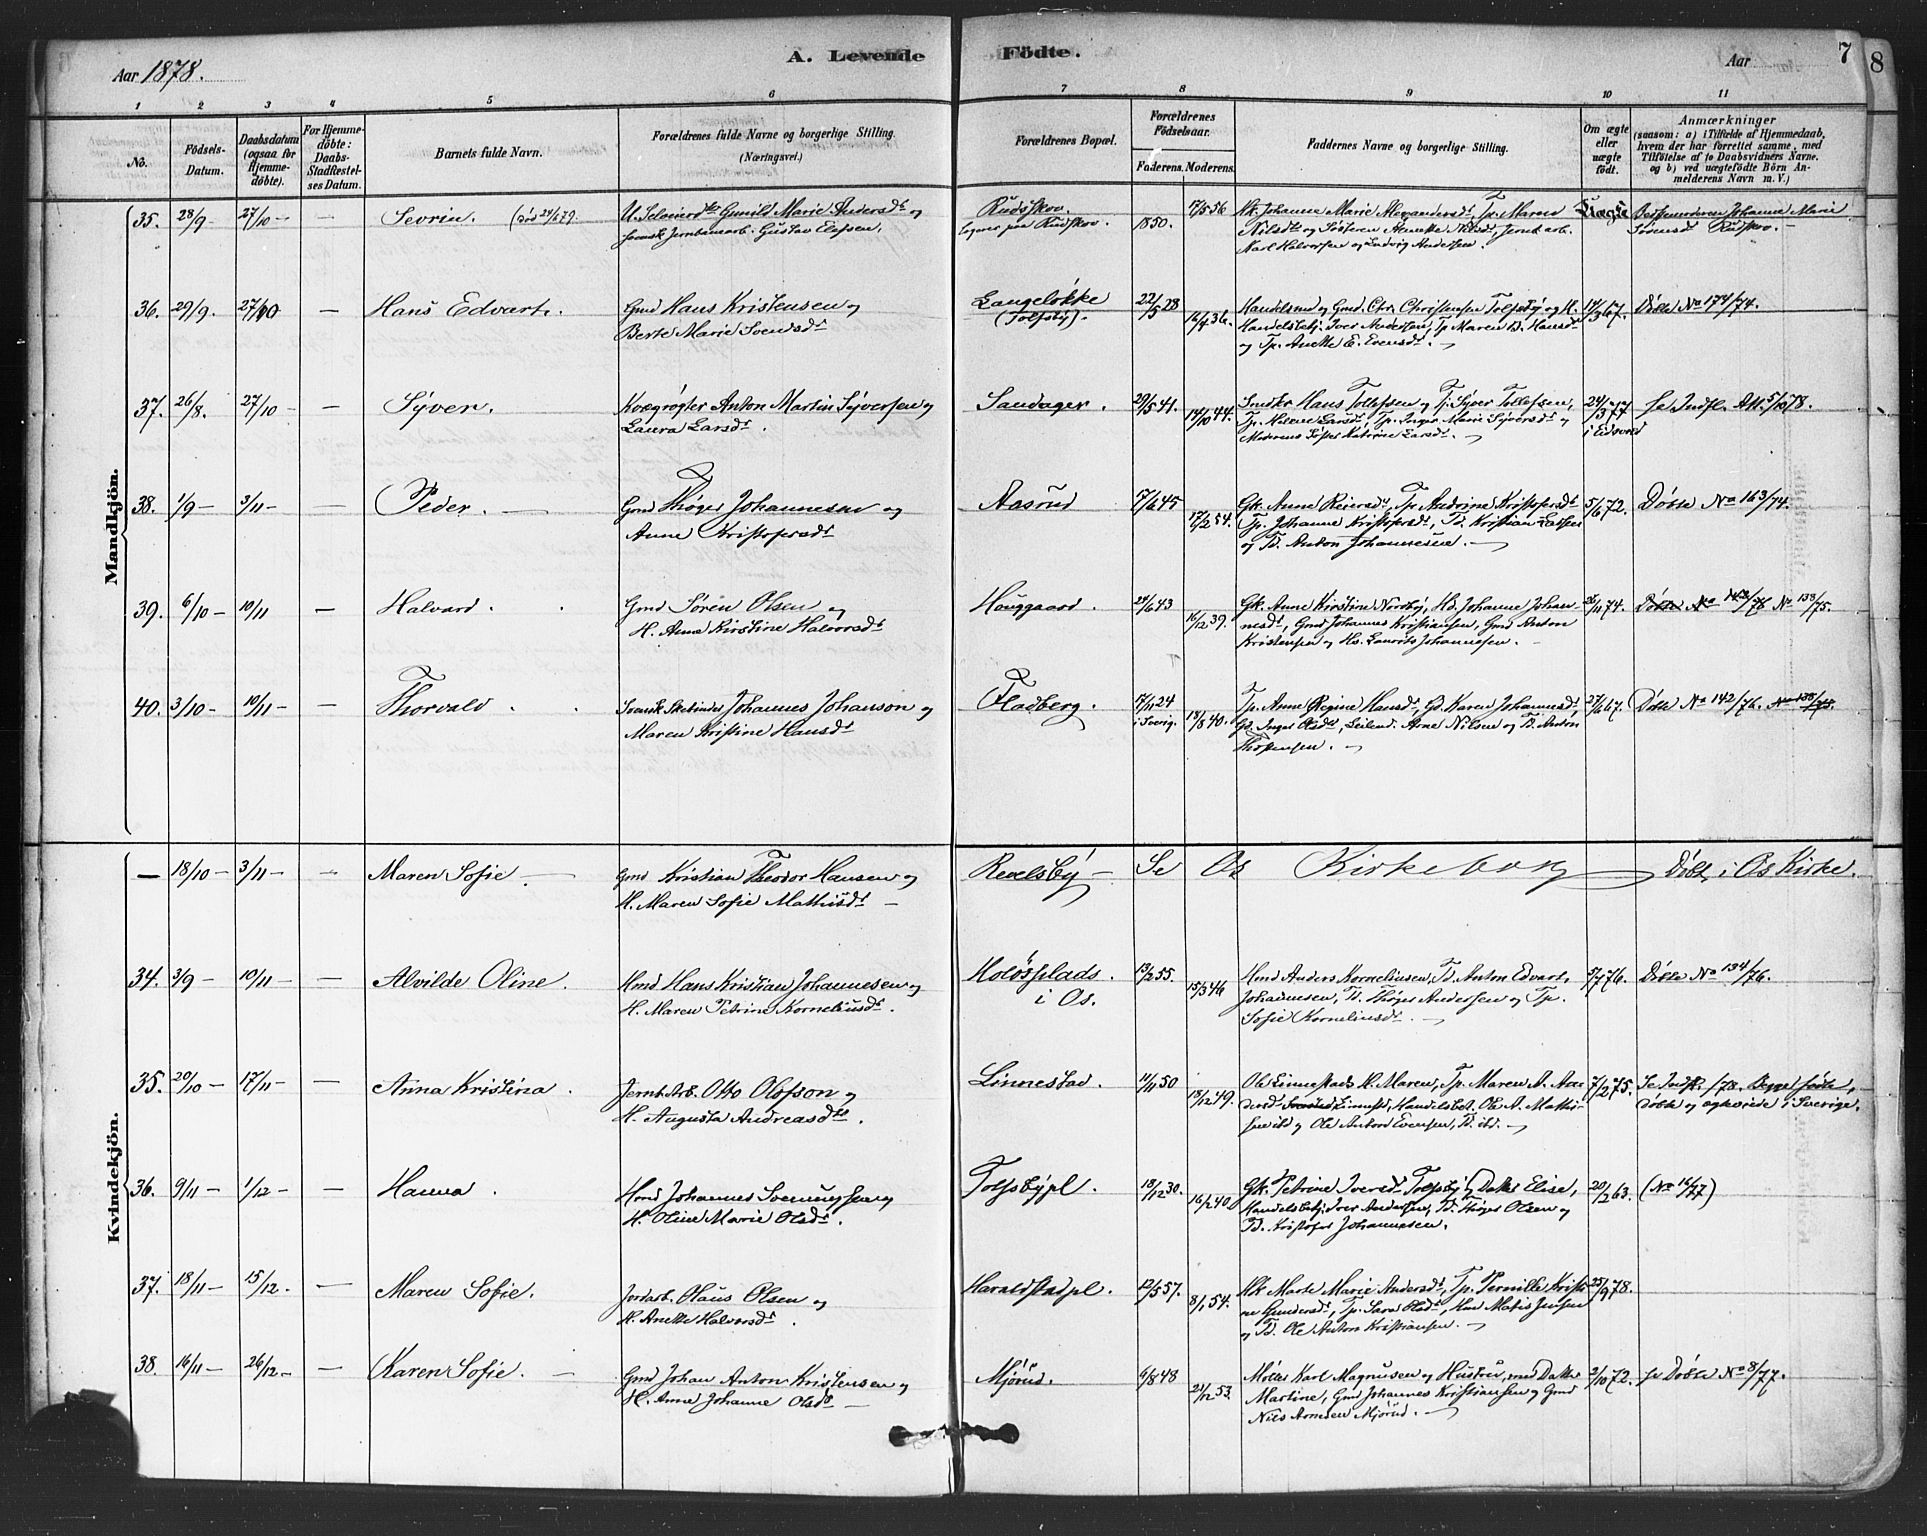 Aar 1878.
A. Levende Födte.
Aar
7
8
1 2 3 4 5 6 7 8 9 10 11
No.
Födsels-Datum.
Daabsdatum (ogsaa for Hjemmedöbte).
For Hjemmedöbte: Daabs-Stadfæstelses Datum.
Barnets fulde Navn.
Forældrenes fulde Navne og borgerlige Stilling. (Næringsvei.)
Forældrenes Bopæl.
Forældrenes Födselsaar.
Faderens. Moderens.
Faddernes Navne og borgerlige Stilling.
Om ægte eller uægte födt.
Anmærkninger
(saasom: a) i Tilfælde af Hjemmedaab,
hvem der har forrettet samme, med
Tilföielse af to Daabsvidners Navne.
og b) ved uægtefödte Börn Anmelderens Navn m. V.)
Mandkjön.
35. 28/9 27/10 — — Sevrin. (død 24/6 79.
Gunild Marie Andersdt og
svensk Jernbanearb. Gustav Elefsen.
Rudskov.
Rudskov.
1850. 17/5 56
Johanne Marie Alexandersdt, Tp. Maren
Nilsdt og Søsteren Annette Nilsdt, Jernb.arb.
Karl Halvorsen og Ludvig Andersen.
Uægte
Bedstemoderen Johanne Marie
Rudskov. —
36. 29/9. 27/10 — Hans Edvart.
Gmd Hans Kristensen og
Berte Marie Svendsdt
Langeløkke
(Tolfsby).
22/5 28 16/4 36.
Handelsmd og Gmd. Chr. Christensen Tolfsby og H.
Handelsbetj. Iver Andersen, Tp Maren B. Hansdt
og Tp. Anette E. Evensdt. —
14/3 67.
Døbte No 174/74.
37. 26/8. 27/10 — — Syver.
Kvægrøgter Anton Martin Syversen og
Laura Larsdt.
Sandager.
29/5 41. 14/10 44.
Snedkr Hans Tollefsen og Tj. Syver Tollefsen,
Tp. Helene Larsdt, Tp. Inger Marie Syversdt og
Moderens Søster Katrine Larsdt. —
24/3 77
i Eidsvold
se Indfl. Att. 5/10 78.
38. 1/9 — 3/11 — — Peder. —
Gmd Thøger Johannesen og
Anne Kristofersdt
Aasrud
7/6 45 17/2 54.
Gk. Anne Reiersdt, Tp Andrine Kristofersdt
Tp. Johanne Kristofersdt, Td. Kristian Larsen
og Td. Anton Johannesen. —
5/6 72.
Døbte No 163/74.
39. 6/10 — 10/11 — Halvard.
Gmd Søren Olsen og
H. Anna Kirstine Halvorsdt
Houggaard.
24/6 43 16/12 39.
Gk. Anne Kirstine Nordby, Hd. Johanne Johannesdt,
Gmd Johannes Kristiansen, Gmd Anton
Kristensen og Hs. Laurits Johannesen. —
26/11 74.
Døbte No 143/76 No 138/75.
40. 3/10 — 10/11 — — Thorvald
Svensk Skrædder Johannes Johanson og
Maren Kristine Hansdt
Fladberg.
17/1 24
i Sverig. 18/8 40.
Tp. Anne Regine Hansdt, Gd. Karen Johannesdt,
Gd. Inger Olsdt, Leilend. Arne Nilsen og Td. Anton
Thostensen. —
27/6 67.
Døbte No 142/76. No 138/75.
Kvindekjön.
— 18/10 — 3/11 — — Maren Sofie. —
Gmd Kristian Theodor Hansen og
H. Maren Sofie Mathisdt —
Revelsby —
Se Os Kirkebog — Døbt i Os Kirke.
34. 3/9 — 10/11 — — Alvilde Oline.
Hmd Hans Kristian Johannesen og
H. Maren Petrine Korneliusdt.
Holøsplads.
i Os.
13/2 55. 15/3 46
Hmd Anders Korneliusen, Td. Anton Edvart,
Johannesen, Td. Thøger Andersen og Tp.
Sofie Korneliusdt. —
5/7 76.
Døbte No 134/76.
35. 20/10 — 17/11 — — Anna Kristina.
Jernb.Arb. Otto Olofson og
H. Augusta Andreasdtr.
Linnestad.
11/11 50 13/12 49.
Ole Linnestads H. Maren, Tp. Maren A. Andersdt
Linnestd, Handelsbet. Ole A. Mathisen
ibd og Ole Anton Evensen, Td. ibd. —
7/2 75.
Se Indk. /78. Begge fødte,
døbte og ægteviede i Sverige.
36. 9/11 — 1/12 — — Hanna.
Hmd Johannes Svenningsen og
H. Oline Marie Olsdt.
Tolfsbypl.
18/12 30. 16/2 40
Gk. Petrine Iversdt Tolfsby og Datter Elise,
Handelsbetj. Iver Andersen, Td. Thøger Olsen og
Td. Kristofer Johannesen.
20/2 63.
(No 16/77)
37. 18/11 — 15/12. — Maren Sofie.
Jordarb. Olaus Olsen og
H. Anette Halvorsdt.
Haraldstadpl.
12/5 57. 8/1 54.
Hk Marte Marie Andersdt, Tp. Pernille Kristine
Gundersdt, Tp. Sara Olsdt, Hmd Matis Jensen
og Td. Ole Anton Kristiansen. —
25/9 78.
38. 16/11 — 26/12 — — Karen Sofie. —
Gmd Johan Anton Kristensen og
H. Anne Johanne Olsdt —
Mjørud.
6/8 48 21/12 53.
Møller Karl Magnusen og Hustru, med Datter
Martine, Gmd Johannes Kristiansen og Gmd
Nils Arnesen Mjørud. —
2/10 72.
se Døbte No 8/77.